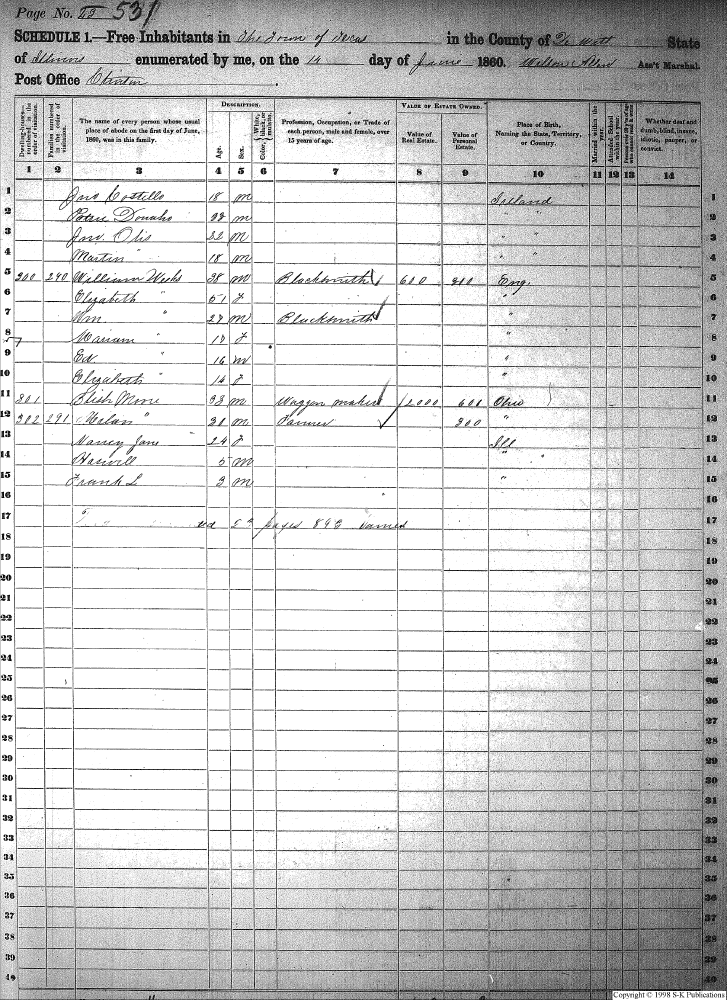 Page No. 53
SCHEDULE 1.—Free Inhabitants in The Town of Texas in the County of De Witt State
of Illinois enumerated by me, on the 14 day of June 1860. Allen Ass't Marshal.
Post Office Clinton
Dwelling-houses—numbered in the order of visitation.
Families numbered in the order of visitation.
The name of every person whose usual place of abode on the first day of June, 1860, was in this family.
DESCRIPTION.
Age.
Sex.
Color, White, black, or mulatto.
Profession, Occupation, or Trade of each person, male and female, over 15 years of age.
VALUE OF ESTATE OWNED.
Value of Real Estate.
Value of Personal Estate.
Place of Birth, Naming the State, Territory, or Country.
Married within the year.
Attended School within the year.
Whether deaf and dumb, blind, insane, idiotic, pauper, or convict.
1 2 3 4 5 6 7 8 9 10 11 12 13 14
1 Jno Costello 18 m Ireland 1
2 Donaho m " " 2
3 Jno. Otis 22 m " " 3
4 Martin " 18 m " " 4
5 300 290 William Weeks 38 m Blacksmith 600 Eng. 5
6 Elizabeth " 51 f " 6
7 Wm " 27 m Blacksmith " 7
8 Mariam " 17 f " 8
9 Ed " 16 m " 9
10 Elizabeth " 14 f " 10
11 301 Moore 33 m Waggon maker 12000 600 Ohio 11
12 302 291 Milan " 31 m Farmer 300 " 12
13 Nancy Jane " 24 f Ill 13
14 5 m " " 14
15 Frank L 3 m " 15
16 16
17 pages 893 names 17
18 18
19 19
20 20
21 21
22 22
23 23
24 24
25 25
26 26
27 27
28 28
29 29
30 30
31 31
32 32
33 33
34 34
35 35
36 36
37 37
38 38
39 39
40 40
Copyright © 1998 S-K Publications